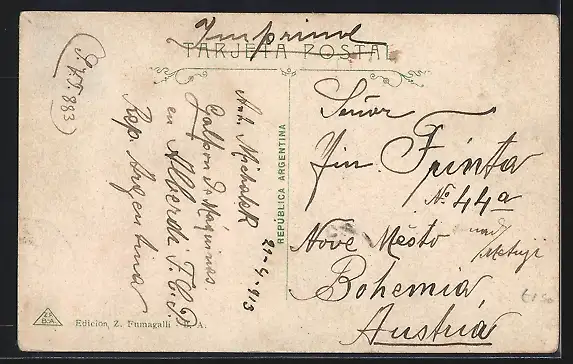 Imprimé
TARJETA POSTAL
Ant. Michalek
Galpon de Máquinas
en Alberdi F.C.P.
Rep. Argentina
21-4-13
REPÚBLICA ARGENTINA
Señor
Jin. Frinta
No. 44a
Nové Město
nad
Metují
Bohemia
Austria
Edicion, Z. Fumagalli A.